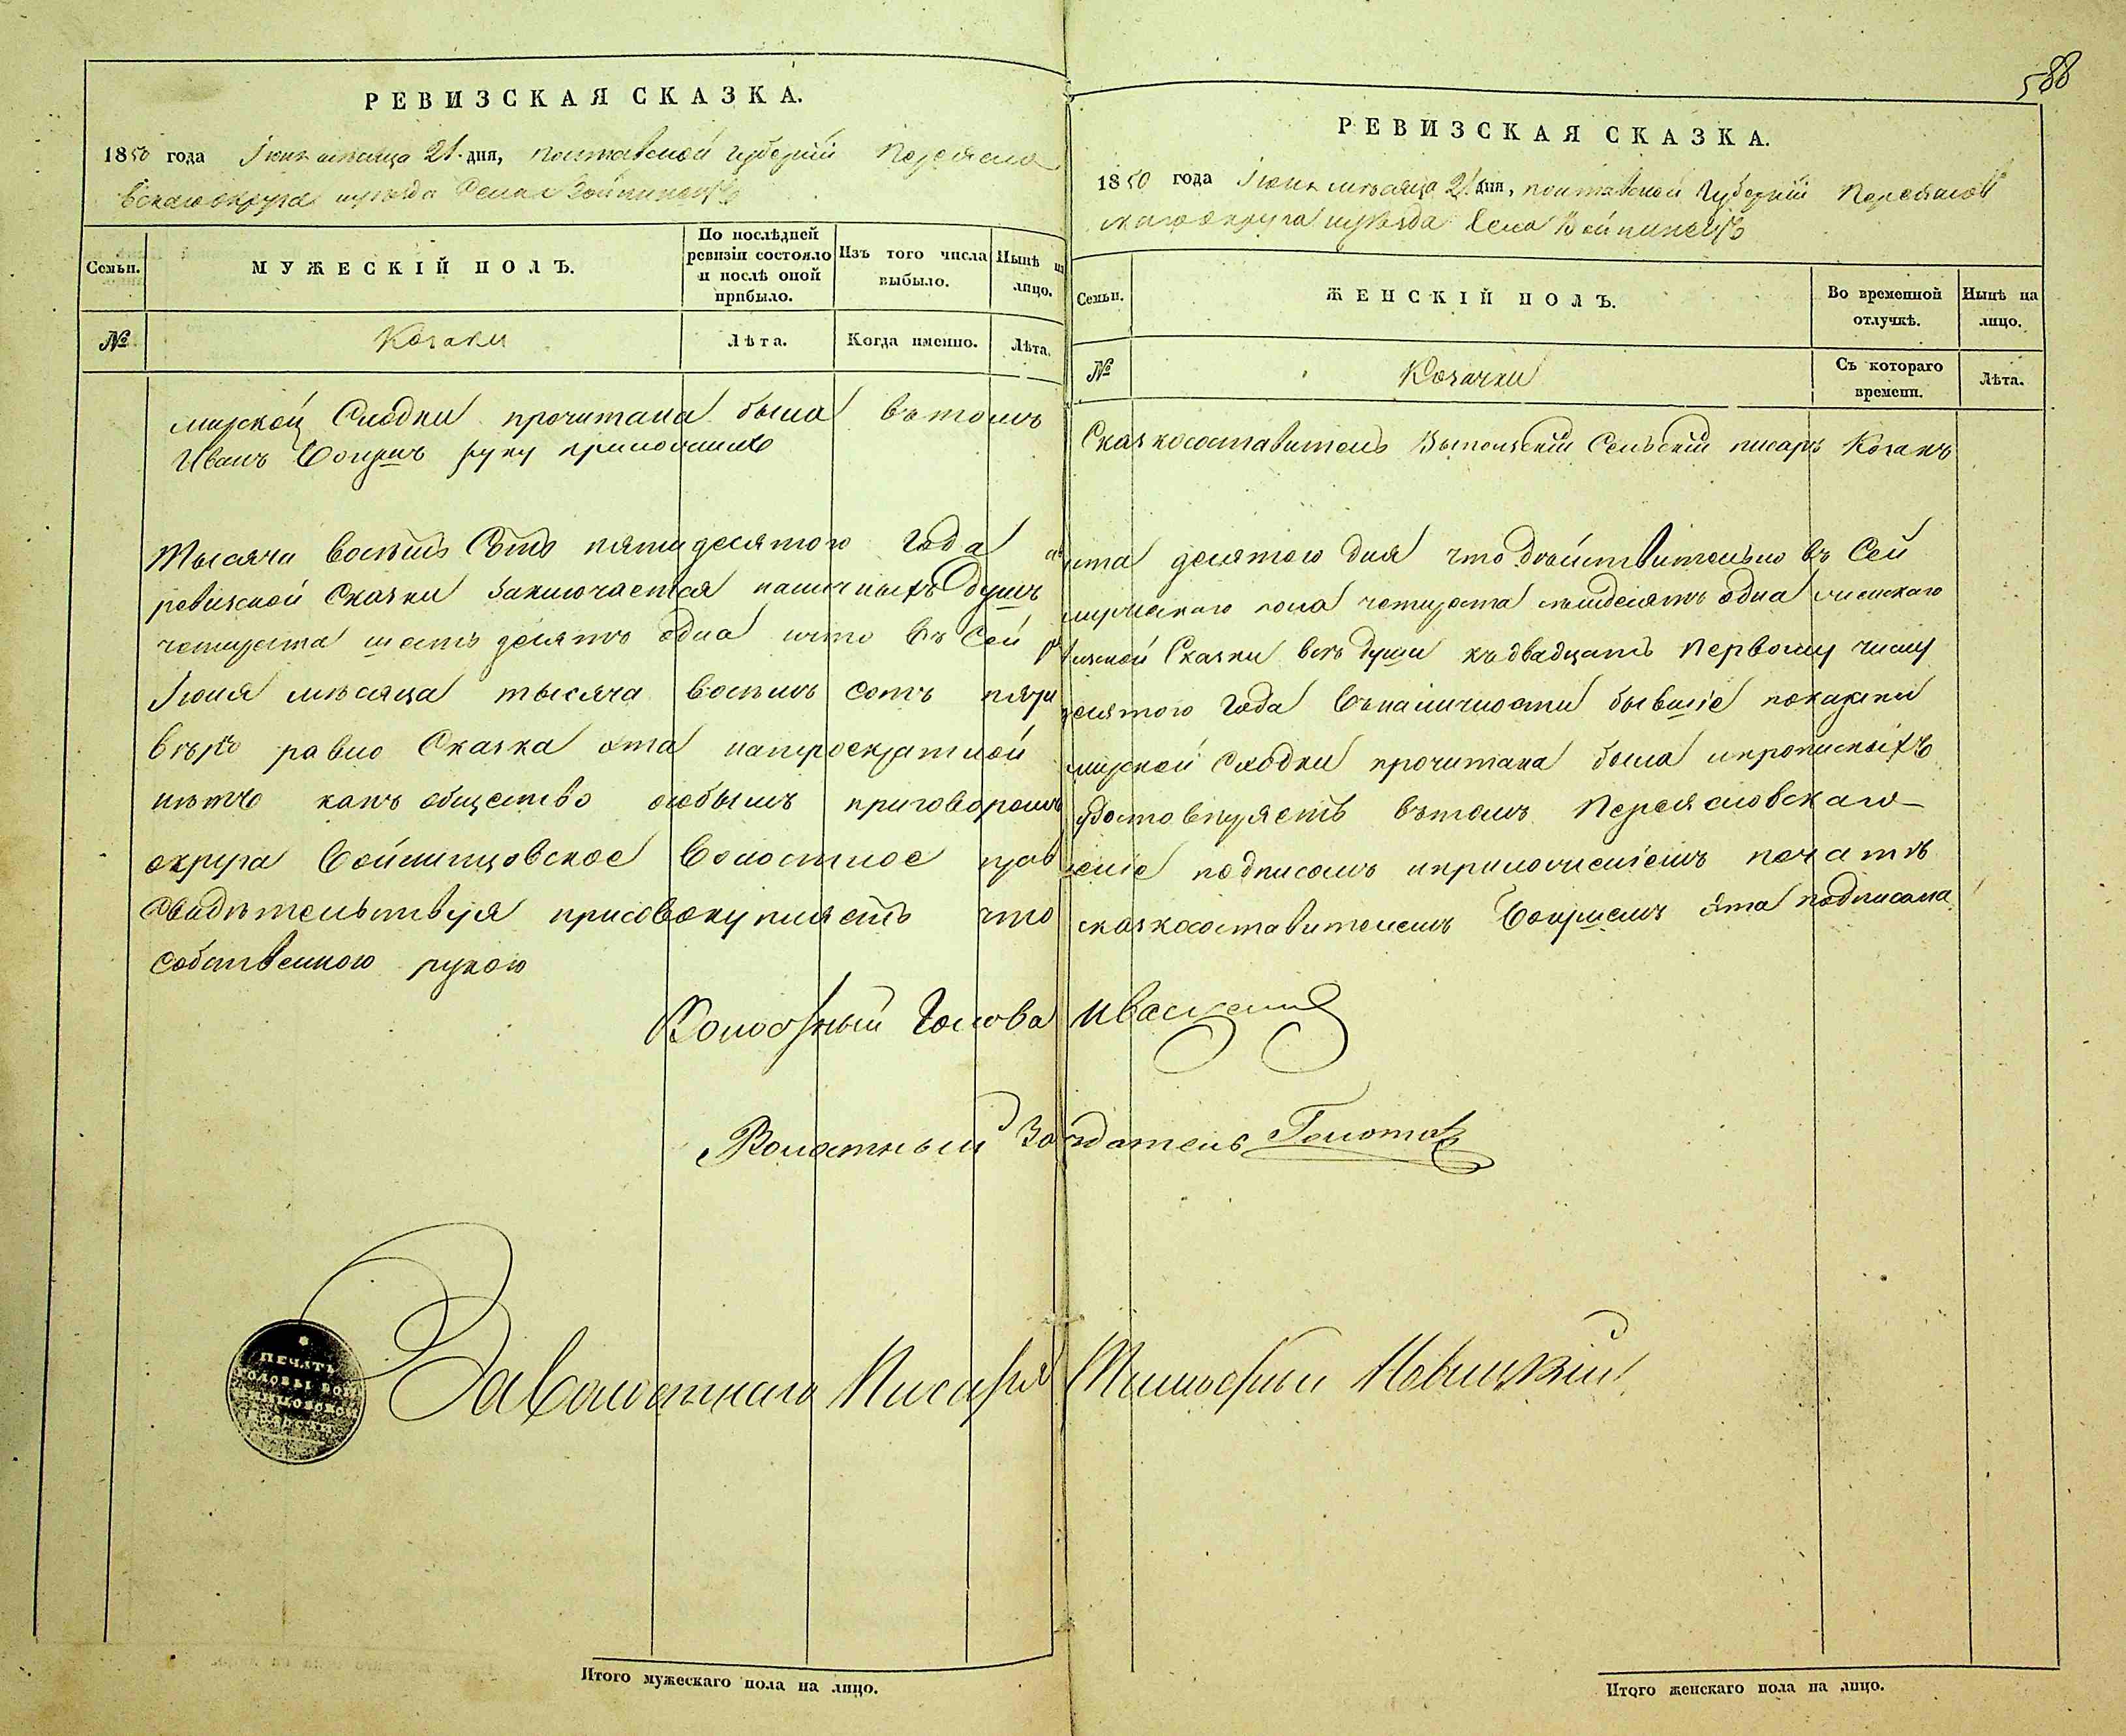 588
РЕВИЗСКАЯ СКАЗКА.
1850 года Іюня мѣсяца 21 дня, Полтавской Губерніи Переясла
вскаго округа и уѣзда Села Войтинецъ
Семьи.
МУЖЕСКІЙ ПОЛЪ.
По послѣдней ревизіи состояло и послѣ оной прибыло.
Изъ того числа выбыло.
Нынѣ на лицо.
№
Козаки
Лѣта.
Когда именно.
Лѣта.
мирской Сходки прочитана была въ томъ
Иванъ руку приложилъ
Тысяча восемь Сотъ пятидесятого года
ревизской Сказки заключается наличныхъ душъ
четыреста шесть десятъ одна и что въ Сей
Іюня мѣсяца тысяча восемь сотъ пяти
вѣрно равно Сказка эта на троекратной
нѣтъ какъ общество особымъ приговоромъ
округа Войтинцовское Волостное прав
свидѣтельствуя присовокупляетъ что
собственною рукою
РЕВИЗСКАЯ СКАЗКА.
1850 года Іюня мѣсяца 21 дня, Полтавской Губерніи Переяслов
скаго округа и уѣзда Села Войтинецъ
Семьи.
ЖЕНСКІЙ ПОЛЪ.
Во временной отлучкѣ.
Нынѣ на лицо.
№
Козачки
Съ котораго времени.
Лѣта.
Сказкосоставитель Сельскій писарь Козакъ
десятого дня что дѣйствительно въ Сей
мужескаго пола четыреста одна женскаго
Сказки всѣ души къ двадцать первому числу
десятого года въ наличности бывшіе показаны
мирской сходки прочитана была и прописныхъ
удостовѣряетъ въ томъ Переясловскаго
леніе подписомъ и приложеніемъ печати
сказкосоставителемъ эта подписана
Волостный Голова Иваск
Волостный Засѣдатель Голота
За Волостнаго Писаря Новицкій
ПЕЧАТЬ
ГОЛОВЫ ВОЙ
ТИНЦОВСКОЙ
Итого мужескаго пола на лицо.
Итого женскаго пола на лицо.